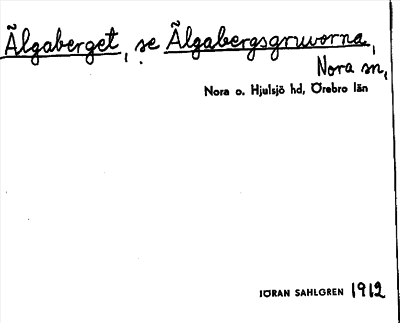 Älgaberget, se Älgabergsgruvorna,
Nora sn,
Nora o. Hjulsjö hd, Örebro län
JÖRAN SAHLGREN 1912